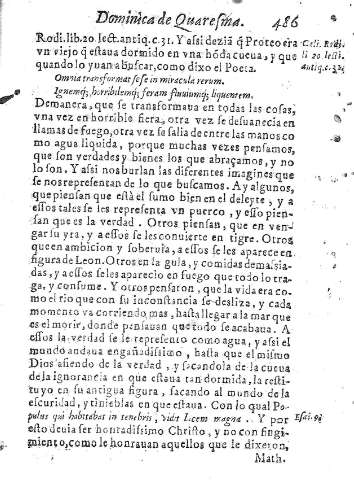 Dominica de Quaresma. 486
Rodi. lib. 20. lect. antiq. c. 31. Y assi deziã q̃ Proteo era
vn viejo q̃ estaua dormido en vna hõda cueua, y que
quando lo yuan a buscar, como dixo el Poeta.
Omnia transformat sese in miracula rerum.
Ignemq́; horribilemq́; feram fluuiumq́; liquentem.
Demanera, que se transformaua en todas las cosas,
vna vez en horrible fiera, otra vez se desuanecia en
llamas de fuego, otra vez se salia de entre las manos co
mo agua liquida, porque muchas vezes pensamos,
que son verdades y bienes los que abraçamos, y no
lo son. Y assi nos burlan las diferentes imagines que
se nos representan de lo que buscamos. Ay algunos,
que piensan que està el sumo bien en el deleyte, y a
essos tales se les representa vn puerco, y esso pien-
san que es la verdad. Otros piensan, que en ven-
gar su yra, y a essos se les conuierte en tigre. Otros
que en ambicion y soberuia, a essos se les aparece en
figura de Leon. Otros en la gula, y comidas demasia-
das, y a essos se les aparecio en fuego que todo lo tra-
ga, y consume. Y otros pensaron, que la vida era co-
mo el rio que con su inconstancia se desliza, y cada
momento va corriendo mas, hasta llegar a la mar que
es el morir, donde pensauan que todo se acabaua. A
essos la verdad se le represento como agua, y assi el
mundo andaua engañadissimo, hasta que el mismo
Dios assiendo de la verdad, y sacandola de la cueua
de la ignorancia en que estaua tan dormida, la resti-
tuyo en su antigua figura, sacando al mundo de la
escuridad, y tinieblas en que estaua. Con lo qual Po-
pulus qui habitabat in tenebris, vidit lucem magna. Y por
esto deuia ser honradissimo Christo, y no con fingi-
miento, como le honrauan aquellos que le dixeron,
Math.
Celi. Rodi.
li. 20. lecti.
antiq. c. 31.
Esai. 9.